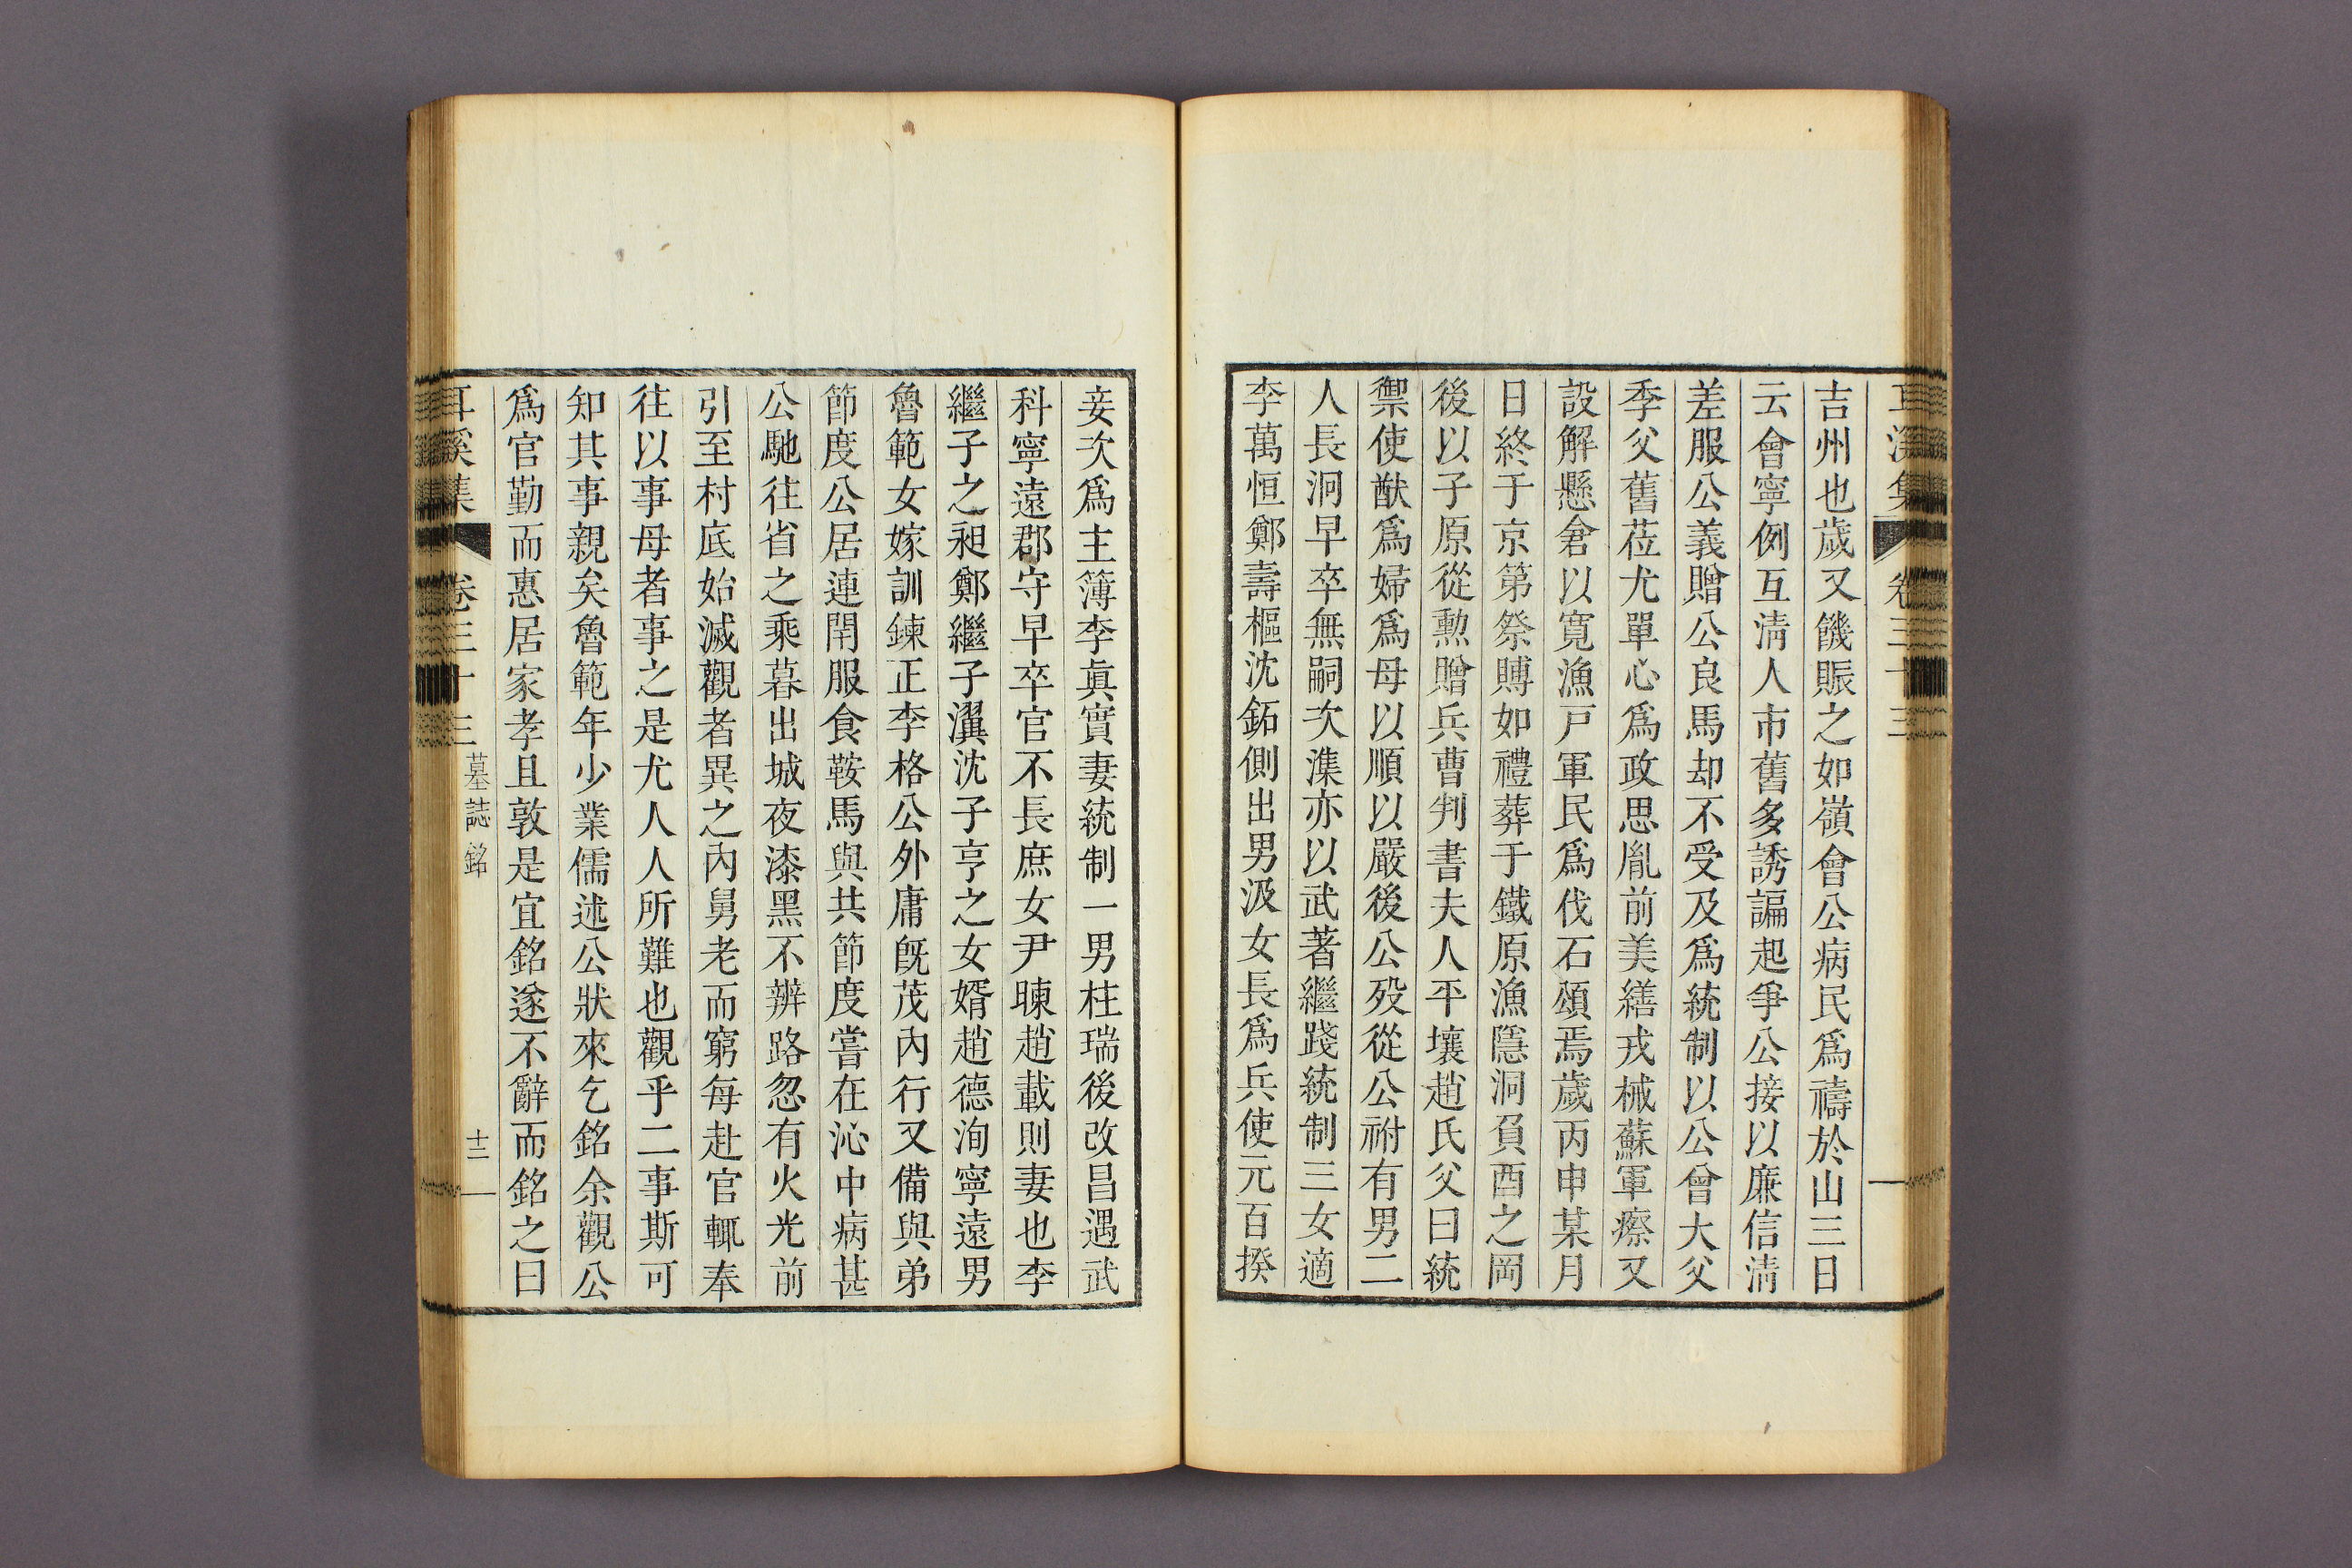 吉州也歲又饑賑之如嶺會公病民爲禱於山三日
云會寧例互淸人市舊多誘諞起爭公接以廉信淸
差服公義贈公良馬却不受及爲統制以公曾大父
季父舊莅尤單心爲政思胤前美繕戎械蘇軍瘵又
設解懸倉以寬漁戸軍民爲伐石頌焉歲丙申某月
日終于京第祭賻如禮葬于鐵原漁隱洞負酉之岡
後以子原從勲贈兵曹判書夫人平壤趙氏父曰統
禦使猷爲婦爲母以順以嚴後公歿從公祔有男二
人長泂早卒無嗣次潗亦以武著繼踐統制三女適
李萬恒鄭壽樞沈鉐側出男汲女長爲兵使元百揆
妾次爲主簿李眞實妻統制一男柱瑞後改昌遇武
科寧遠郡守早卒官不長庶女尹暕趙載則妻也李
繼子之昶鄭繼子潩沈子亨之女婿趙德洵寧遠男
魯範女嫁訓鍊正李格公外庸旣茂內行又備與弟
節度公居連閈服食鞍馬與共節度嘗在沁中病甚
公馳往省之乘暮出城夜漆黑不辨路忽有火光前
引至村底始滅觀者異之內舅老而窮每赴官輒奉
往以事母者事之是尤人人所難也觀乎二事斯可
知其事親矣魯範年少業儒述公狀來乞銘余觀公
爲官勤而惠居家孝且敦是宜銘遂不辭而銘之曰
耳溪集 卷三十三 墓誌銘 十二